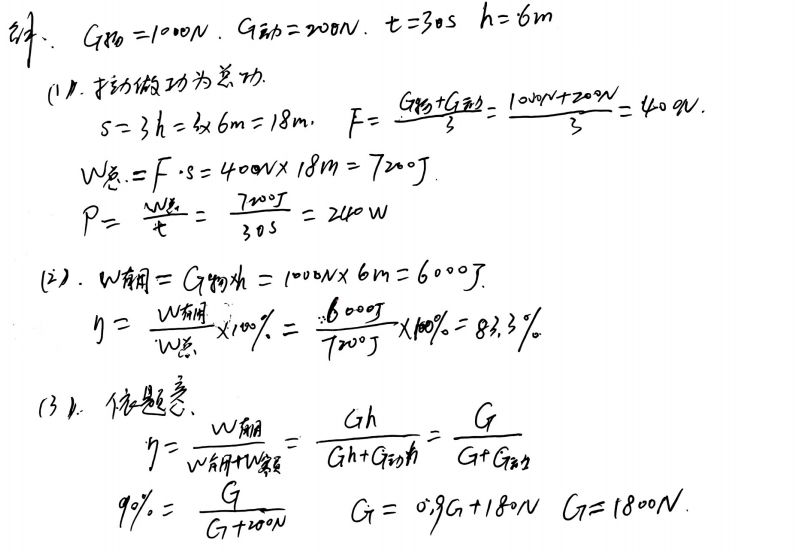 解. G物=1000N. G动=200N. t=30s h=6m
(1). 拉力做功为总功.
s=3h=3×6m=18m. F=\frac{G物+G动}{3}=\frac{1000N+200N}{3}=400N.
W总=F·s=400N×18m=7200J.
P=\frac{W总}{t}=\frac{7200J}{30s}=240W
(2). W有用=G物×h=1000N×6m=6000J.
η=\frac{W有用}{W总}×100%=\frac{6000J}{7200J}×100%=83.3%
(3). 依题意.
η=\frac{W有用}{W有用+W额}=\frac{Gh}{Gh+G动h}=\frac{G}{G+G动}
90%=\frac{G}{G+200N} G=0.9G+180N G=1800N.